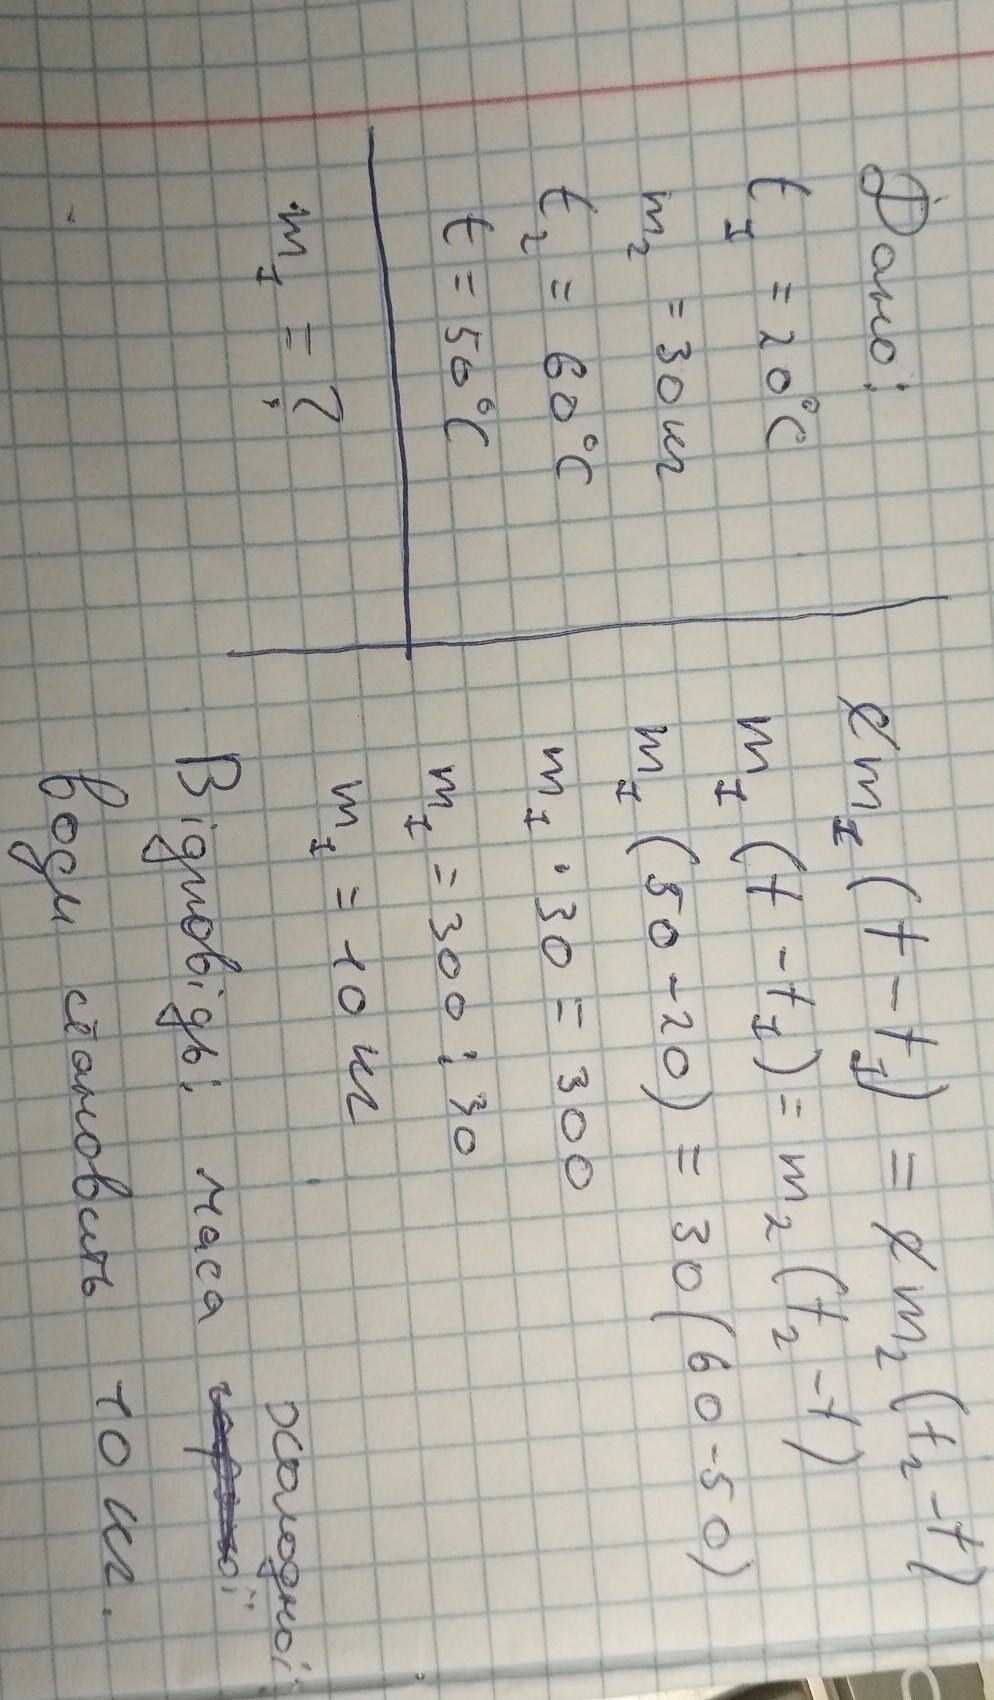 Дано:
t₁ = 20°C
m₂ = 30 кг
t₂ = 60°C
t = 50°C
m₁ = ?
cm₁(t - t₁) = cm₂(t₂ - t)
m₁(t - t₁) = m₂(t₂ - t)
m₁(50 - 20) = 30(60 - 50)
m₁ · 30 = 300
m₁ = 300 : 30
m₁ = 10 кг
холодної
Відповідь: маса
води становить 10 кг.